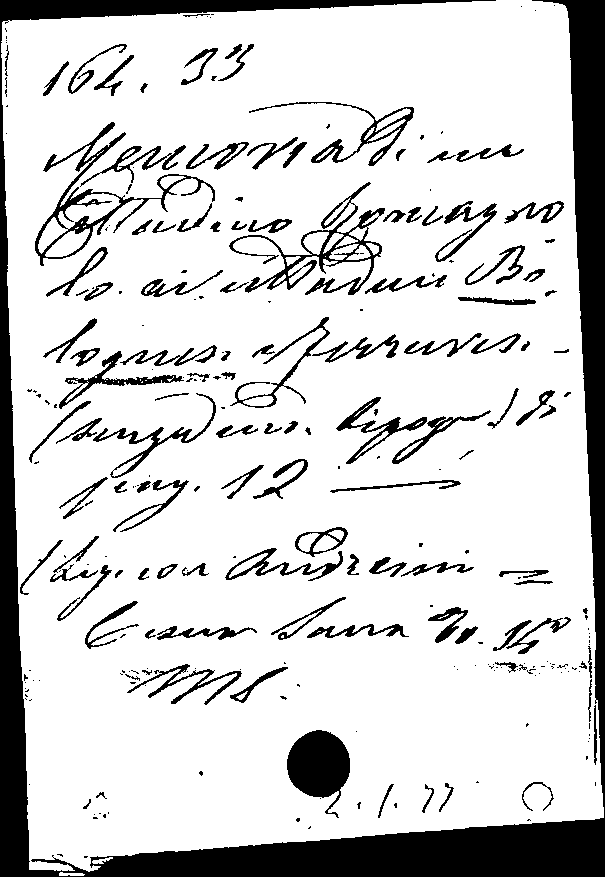 164. 33
Memoria di un
Cittadino Romagno
lo ai cittadini Bo-
lognesi e Ferraresi -
(senza indic. tipogr.) di
pag. 12 —
(Leg. con Andreini =
Cesena Sacra To. 14°
MS.
2.1.77